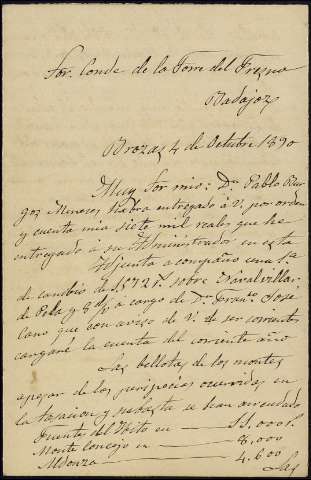 Sor. Conde de la Torre del Fresno
Badajoz
Brozas 4 de Octubre 1890
Muy Sor mio: Dn. Pablo Bur
gos Meneses habra entregado á V. por orden
y cuenta mia siete mil reales que he
entregado á su Administrador en esta
Adjunta acompaño una 
de cambio de sobre Navalvillar
de Pela y 8 d/v a cargo de Dn. José
Cano que con aviso de V. de ser corriente
cargaré la cuenta del corriente año
Las bellotas de los montes
apesar de las peripecias ocurridas en
la tasacion y subasta se han arrendado
Fuente del Hito en
Monte Concejo en — 8,000
— 4.600
Las